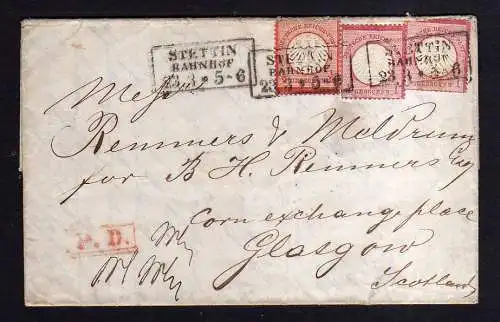 STETTIN
BAHNHOF
23.3 * 5-6
STETTIN
BAHNHOF
23.3 * 5-6
STETTIN
BAHNHOF
23.3 * 5-6
Mess
Remmers & Moldrum
for B. H. Remmers Esq
Corn exchange place
Glasgow
Scotland
P. D.